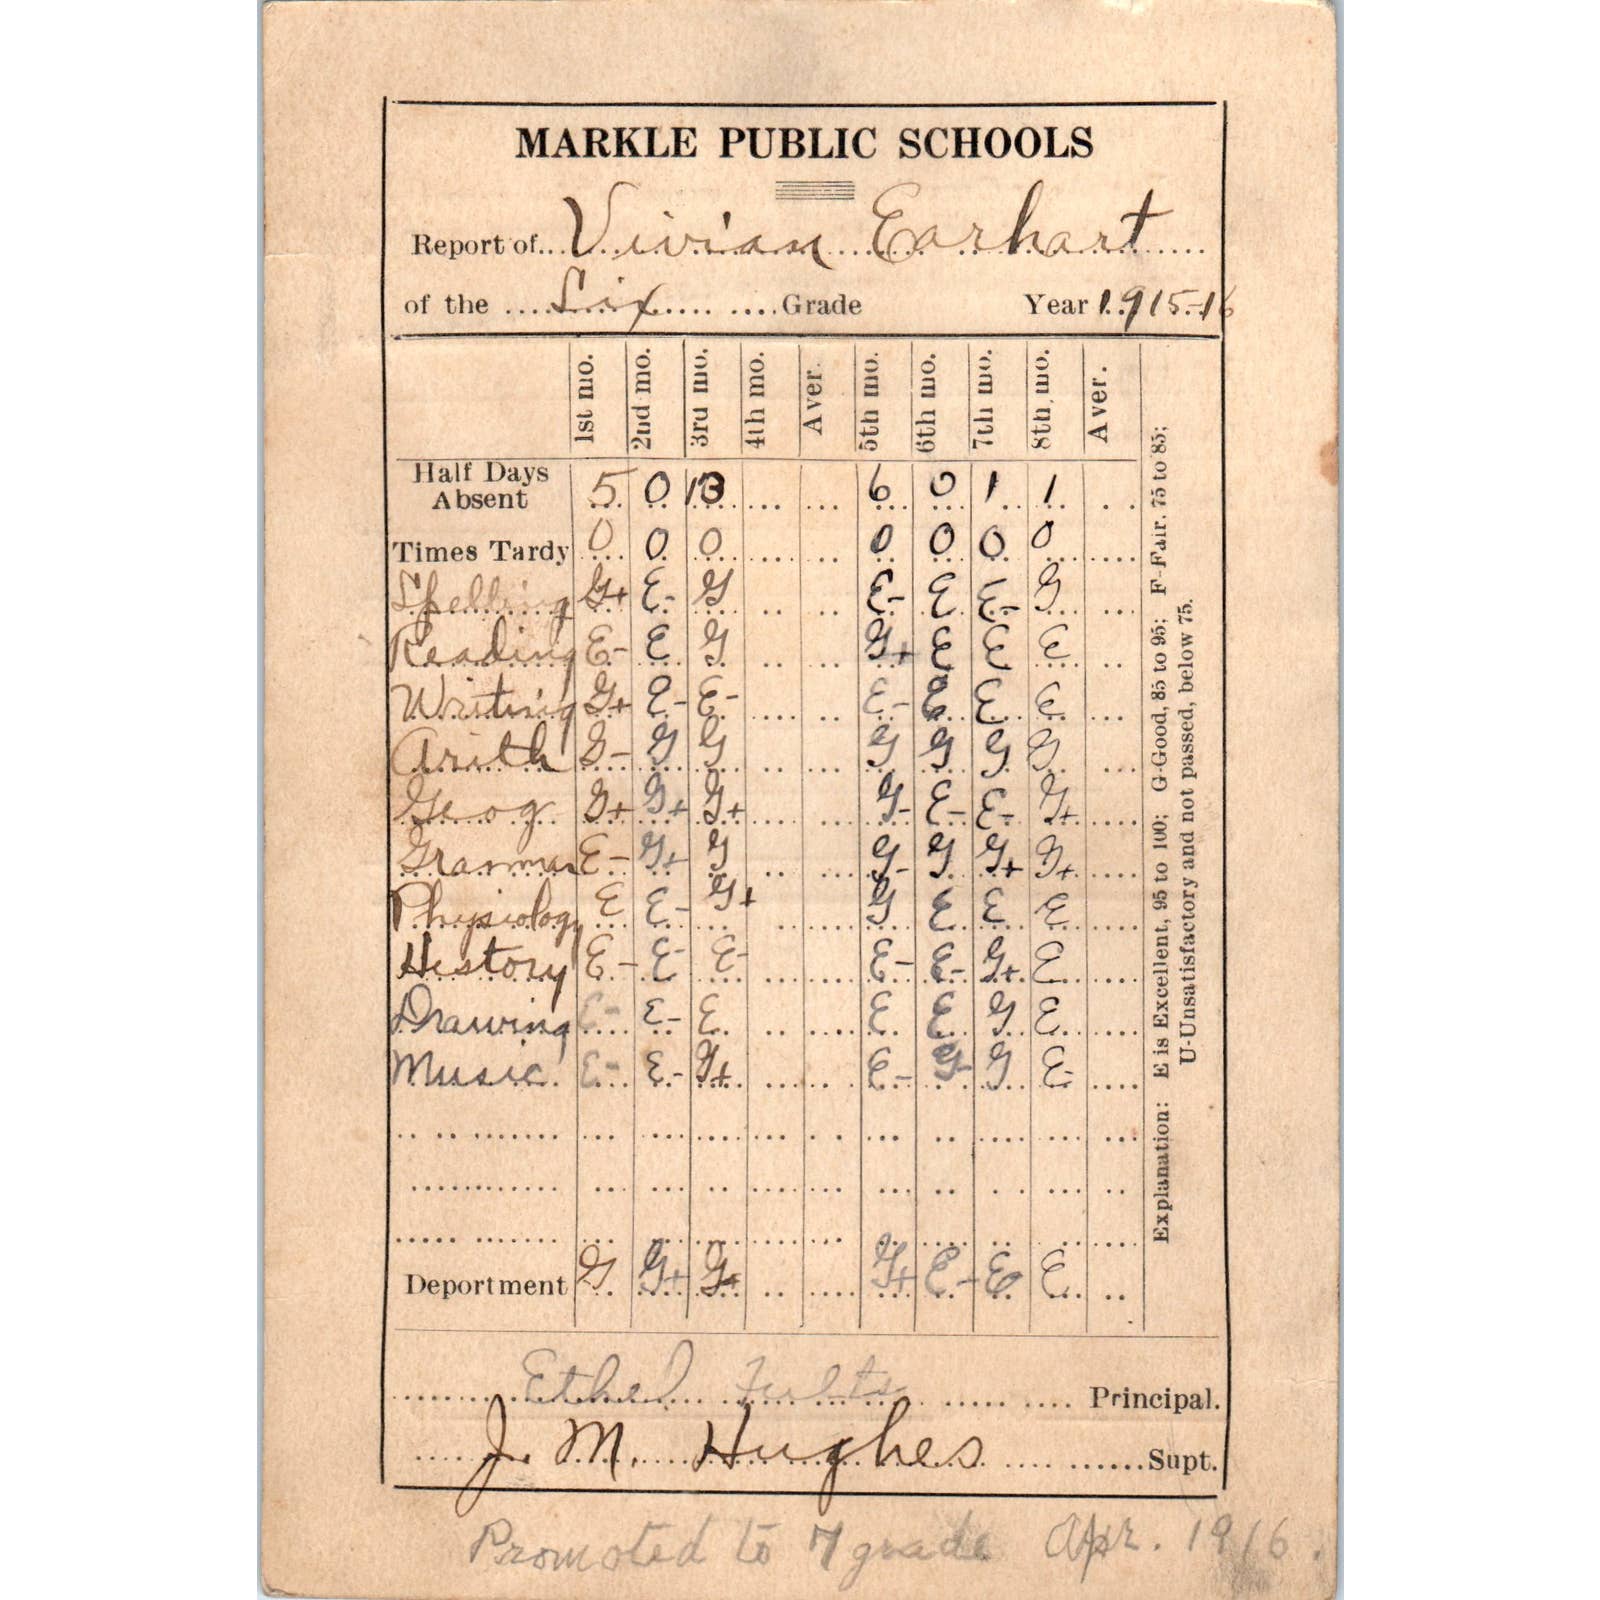 MARKLE PUBLIC SCHOOLS
Report of Vivian Earhart
of the Six Grade Year 1915-16
1st mo. 2nd mo. 3rd mo. 4th mo. Aver. 5th mo. 6th mo. 7th mo. 8th mo. Aver.
Half Days Absent 5 0 13 6 0 1 1
Times Tardy 0 0 0 0 0 0 0
Spelling G+ E- G E- E E- G
Reading E- E G G+ E E E
Writing G+ E- E- E- E E E
Arith G- G G G G G G
Geog G+ G+ G+ G- E- E- G+
Grammar E- G+ G G- G G+ G+
Physiology E E- G+ G E E E
History E- E- E- E- E- G+ E
Drawing E- E- E E E G E
Music E- E- G+ E- G- G E-
Deportment G G+ G+ G+ E- E E
Explanation: E is Excellent, 95 to 100; G-Good, 85 to 95; F-Fair. 75 to 85;
U-Unsatisfactory and not passed, below 75.
Ethel Fults Principal.
J. M. Hughes Supt.
Promoted to 7 grade Apr. 1916.